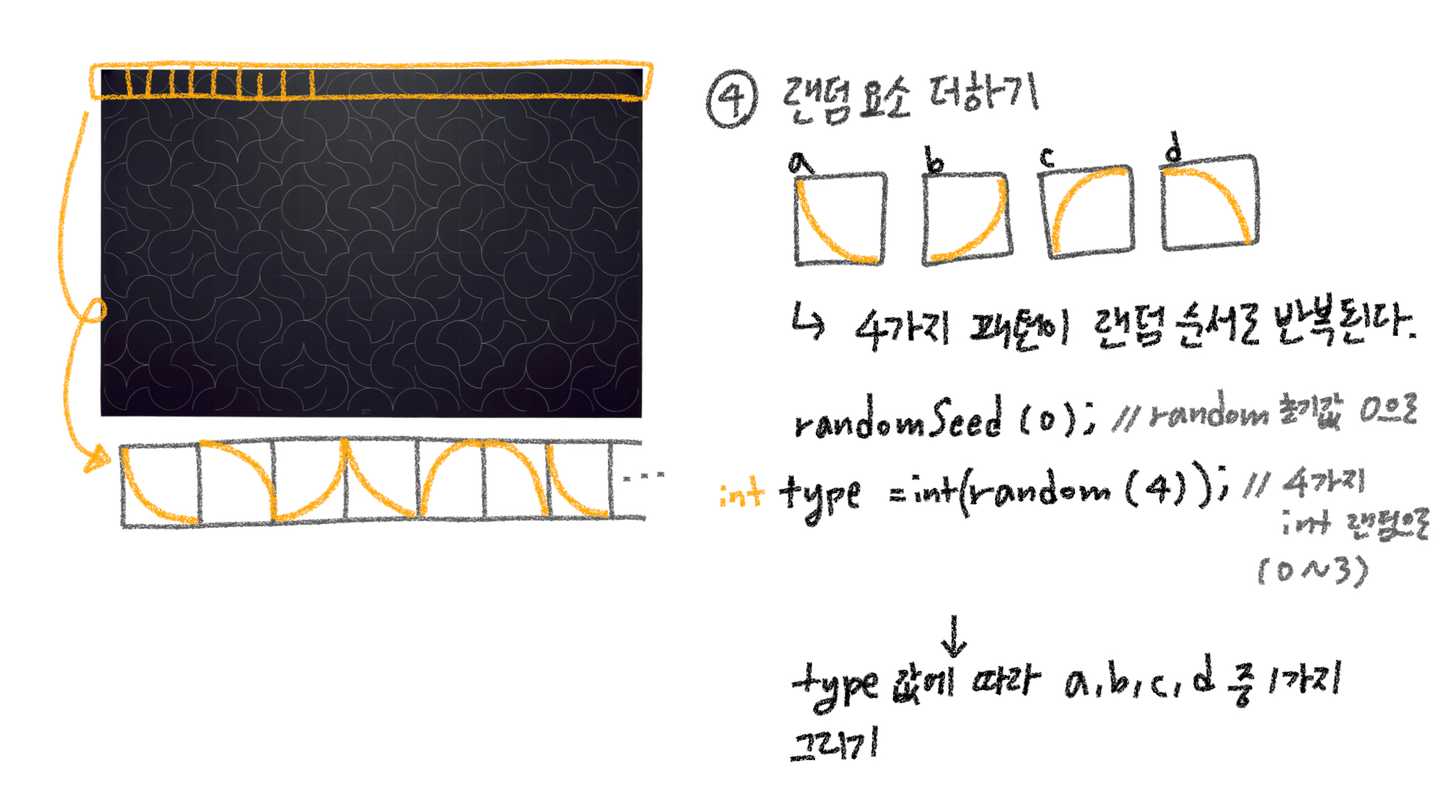 ④ 랜덤요소 더하기
a b c d
↳ 4가지 패턴이 랜덤 순서로 반복된다.
randomSeed (0); // random 초기값 0으로
int type = int(random (4)); // 4가지
int 랜덤으로
(0~3)
↓
type 값에 따라 a, b, c, d 중 1가지
그리기
...